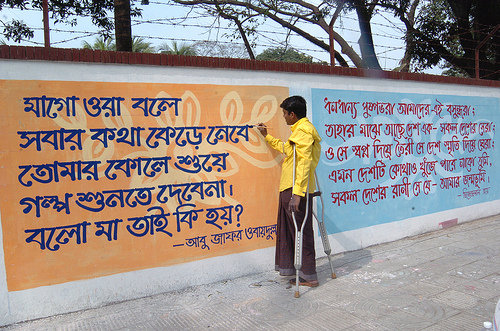 মাগো ওরা বলে
সবার কথা কেড়ে নেবে
তোমার কোলে শুয়ে
গল্প শুনতে দেবেনা।
বলো মা তাই কি হয়?
— আবু জাফর ওবায়দুল
ধনধান্য পুষ্পভরা আমাদের এই বসুন্ধরা;
তাহার মাঝে আছে দেশ এক- সকল দেশের সেরা;
ও সে স্বপ্ন দিয়ে তৈরী সে দেশ স্মৃতি দিয়ে ঘেরা;
এমন দেশটি কোথাও খুঁজে পাবে নাকো তুমি
সকল দেশের রানী সে যে- আমার জন্মভূমি।